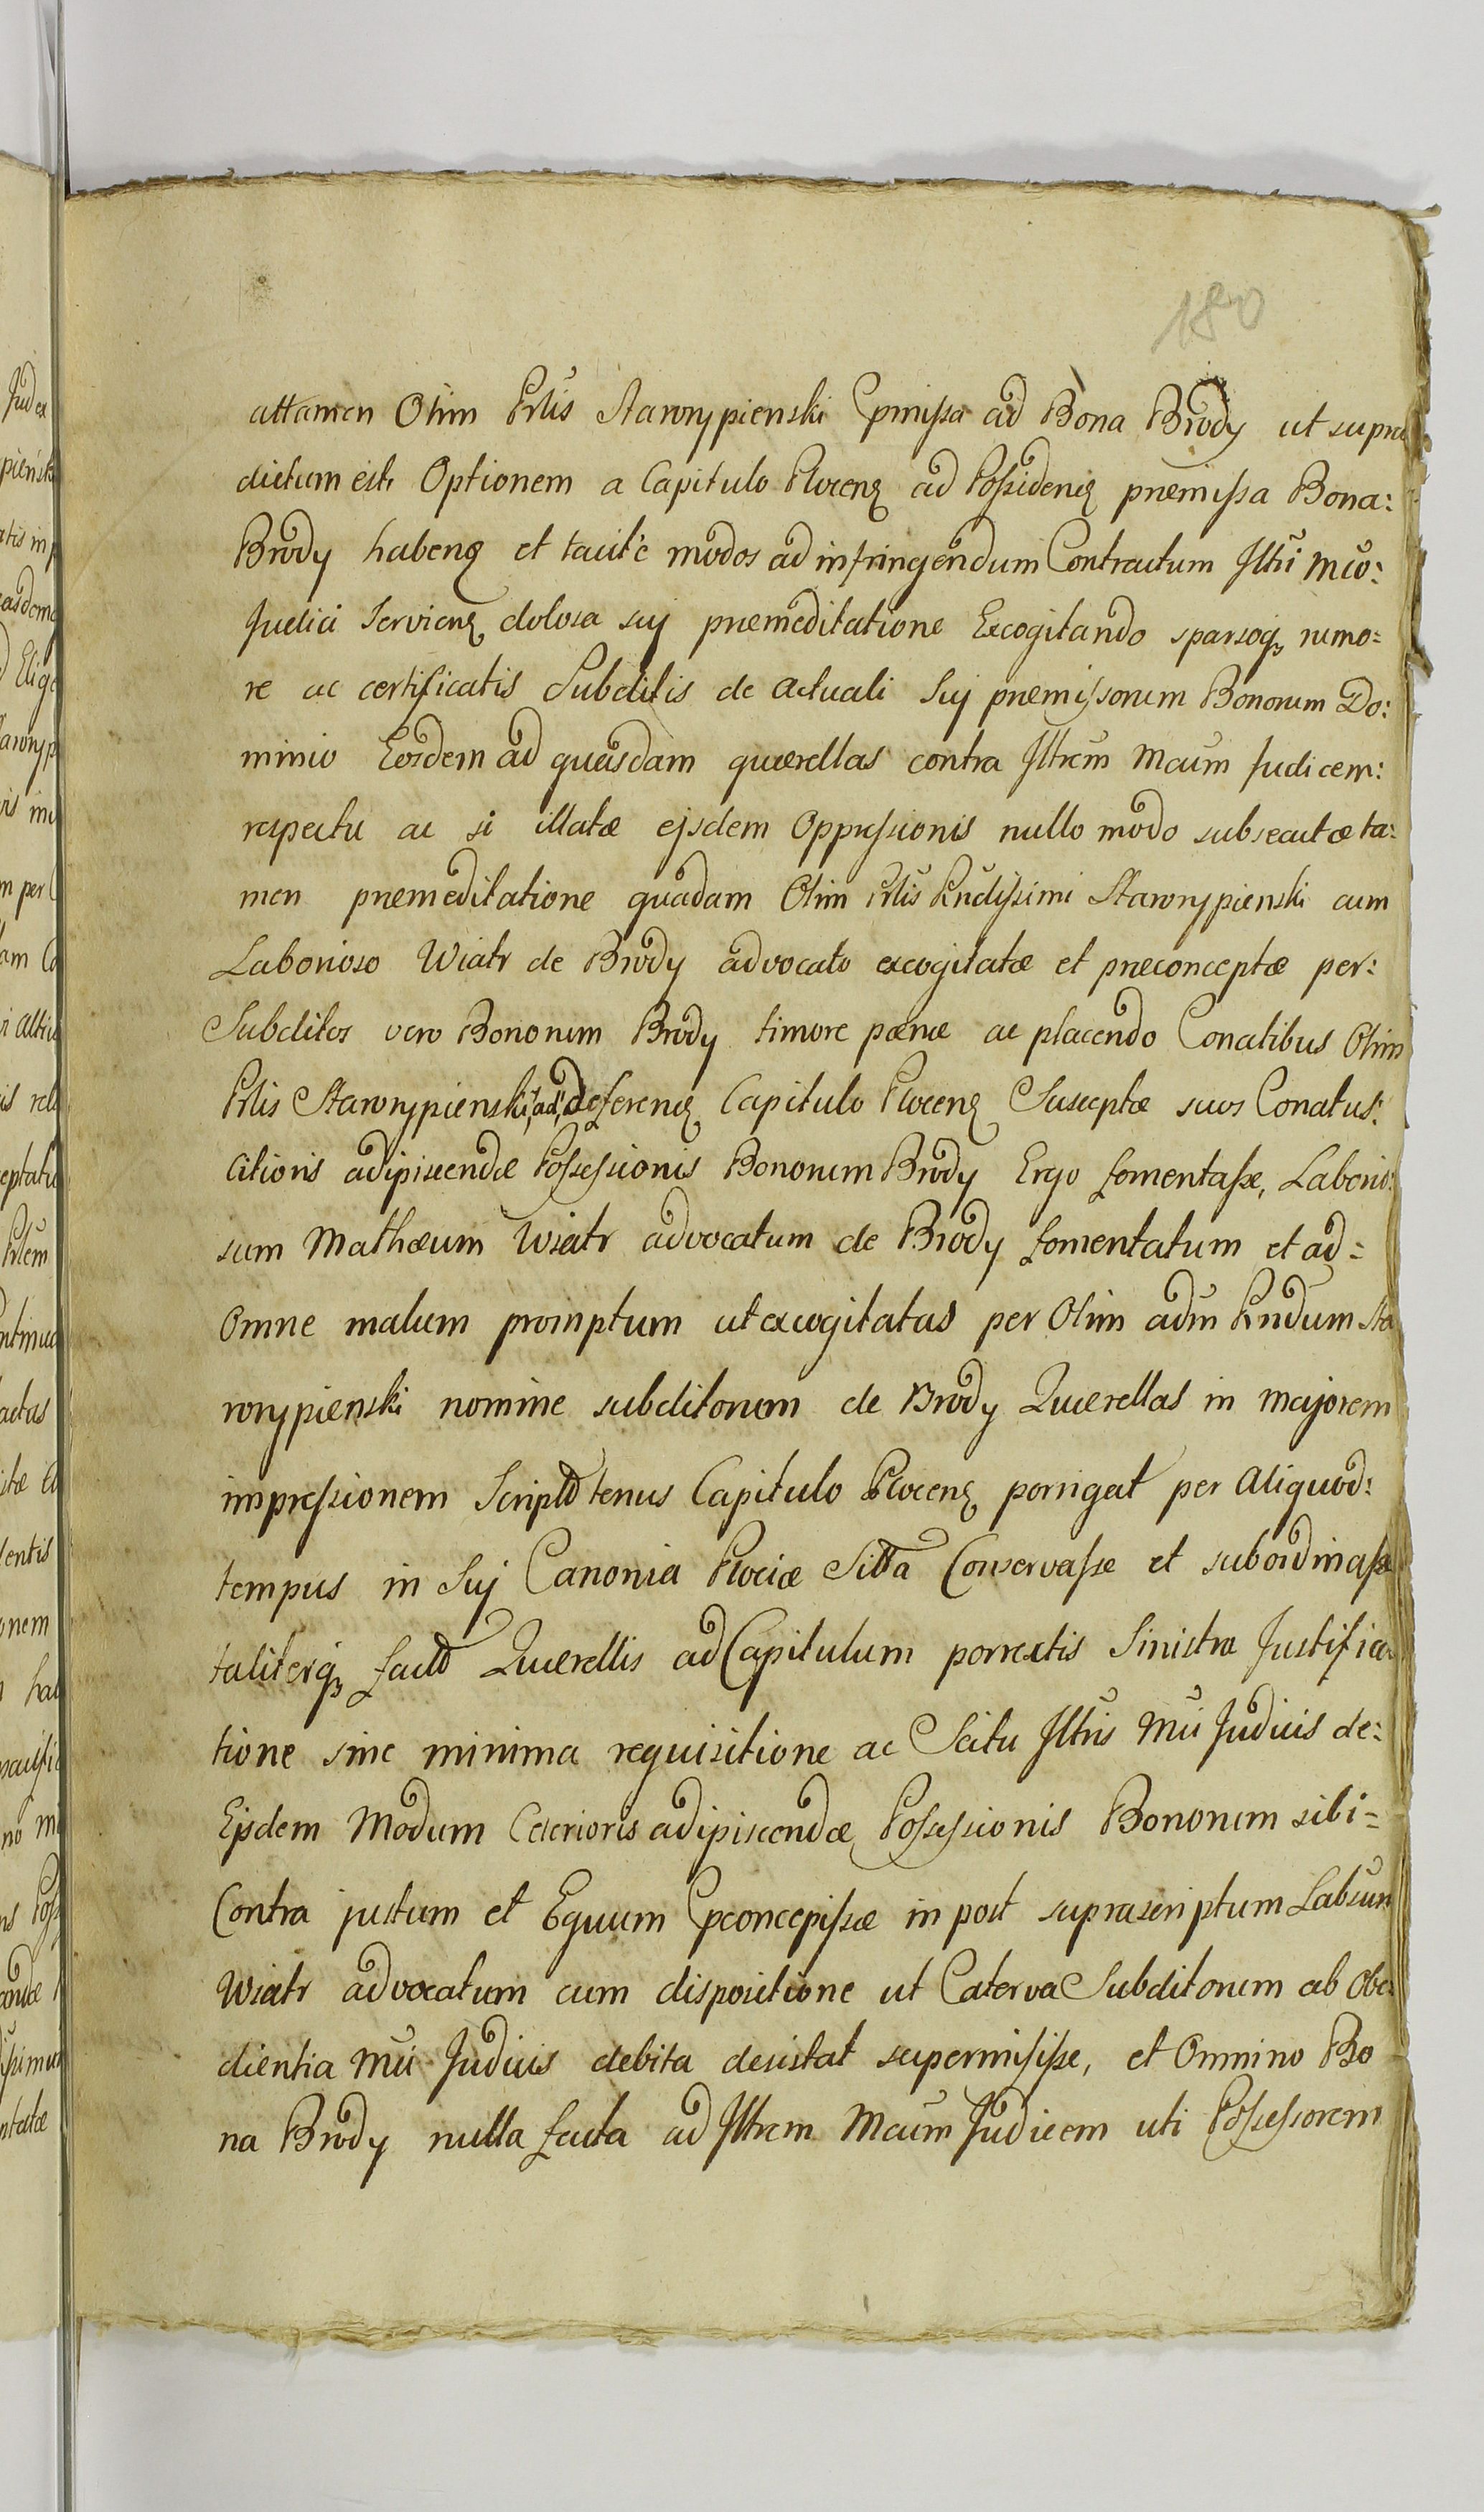 180
attamen Olim Prlis Starorypienski Cpmissa ad Bona Brody ut supra
dictum est Optionem a Capitulo Plocenȝ ad Possidenȝ premissa Bona:
Brody habenȝ et tacite modos ad infringendum Contractum Illri mco:
Judici Servienȝ dolosa suj premeditatione Excogitando sparsoqȝ rumo=
re ac certificatis Subditis de actuali Suj premissorum Bonorum Do:
minio Eosdem ad quasdam quærellas contra Illrem Mcum Judicem:
respectu ac si illatæ ejsdem Oppressionis nullo modo subsecutæ ta:
men premeditatione quadam Olim Prlis Rndissimi Starorypienski cum
Laborioso Wiatr de Brody advocato excogitatæ et preconceptæ per:
Subditos vero Bonorum Brody timore pœnæ ac placendo Conatibus Olim
Prlis Starorypienski, ad, deferenȝ Capitulo Plocenȝ Susceptæ suos Conatus:
Citioris adipiscendæ Possessionis Bonorum Brody Ergo fomentasse, Laborio:
sum Mathæum Wiatr advocatum de Brody fomentatum et ad=
Omne malum promptum ut excogitatas per Olim adm Rndum Sta
rorypienski nomine subditorum de Brody Querellas in majorem
impressionem Scripto tenus Capitulo Plocenȝ porrigat per aliquod:
tempus in Suj Canonia Plociæ Sitta Conservasse et subordinasse
taliterqȝ facto Querellis ad Capitulum porrectis Sinistra Justifica
tione sine minima requisitione ac Scitu Illris Mci Judicis de:
Ejsdem Modum Celerioris adipiscendæ Possessionis Bonorum sibi=
Contra justum et Equum Cpconcepisse in post suprascriptum Labsum
Wiatr advocatum cum dispositione ut Caterva Subditorum ab Obe:
dientia Mci Judicis debita desistat supermisisse, et Omnino Bo
na Brody nulla facta ad Illrem Mcum Judicem uti Possessorem